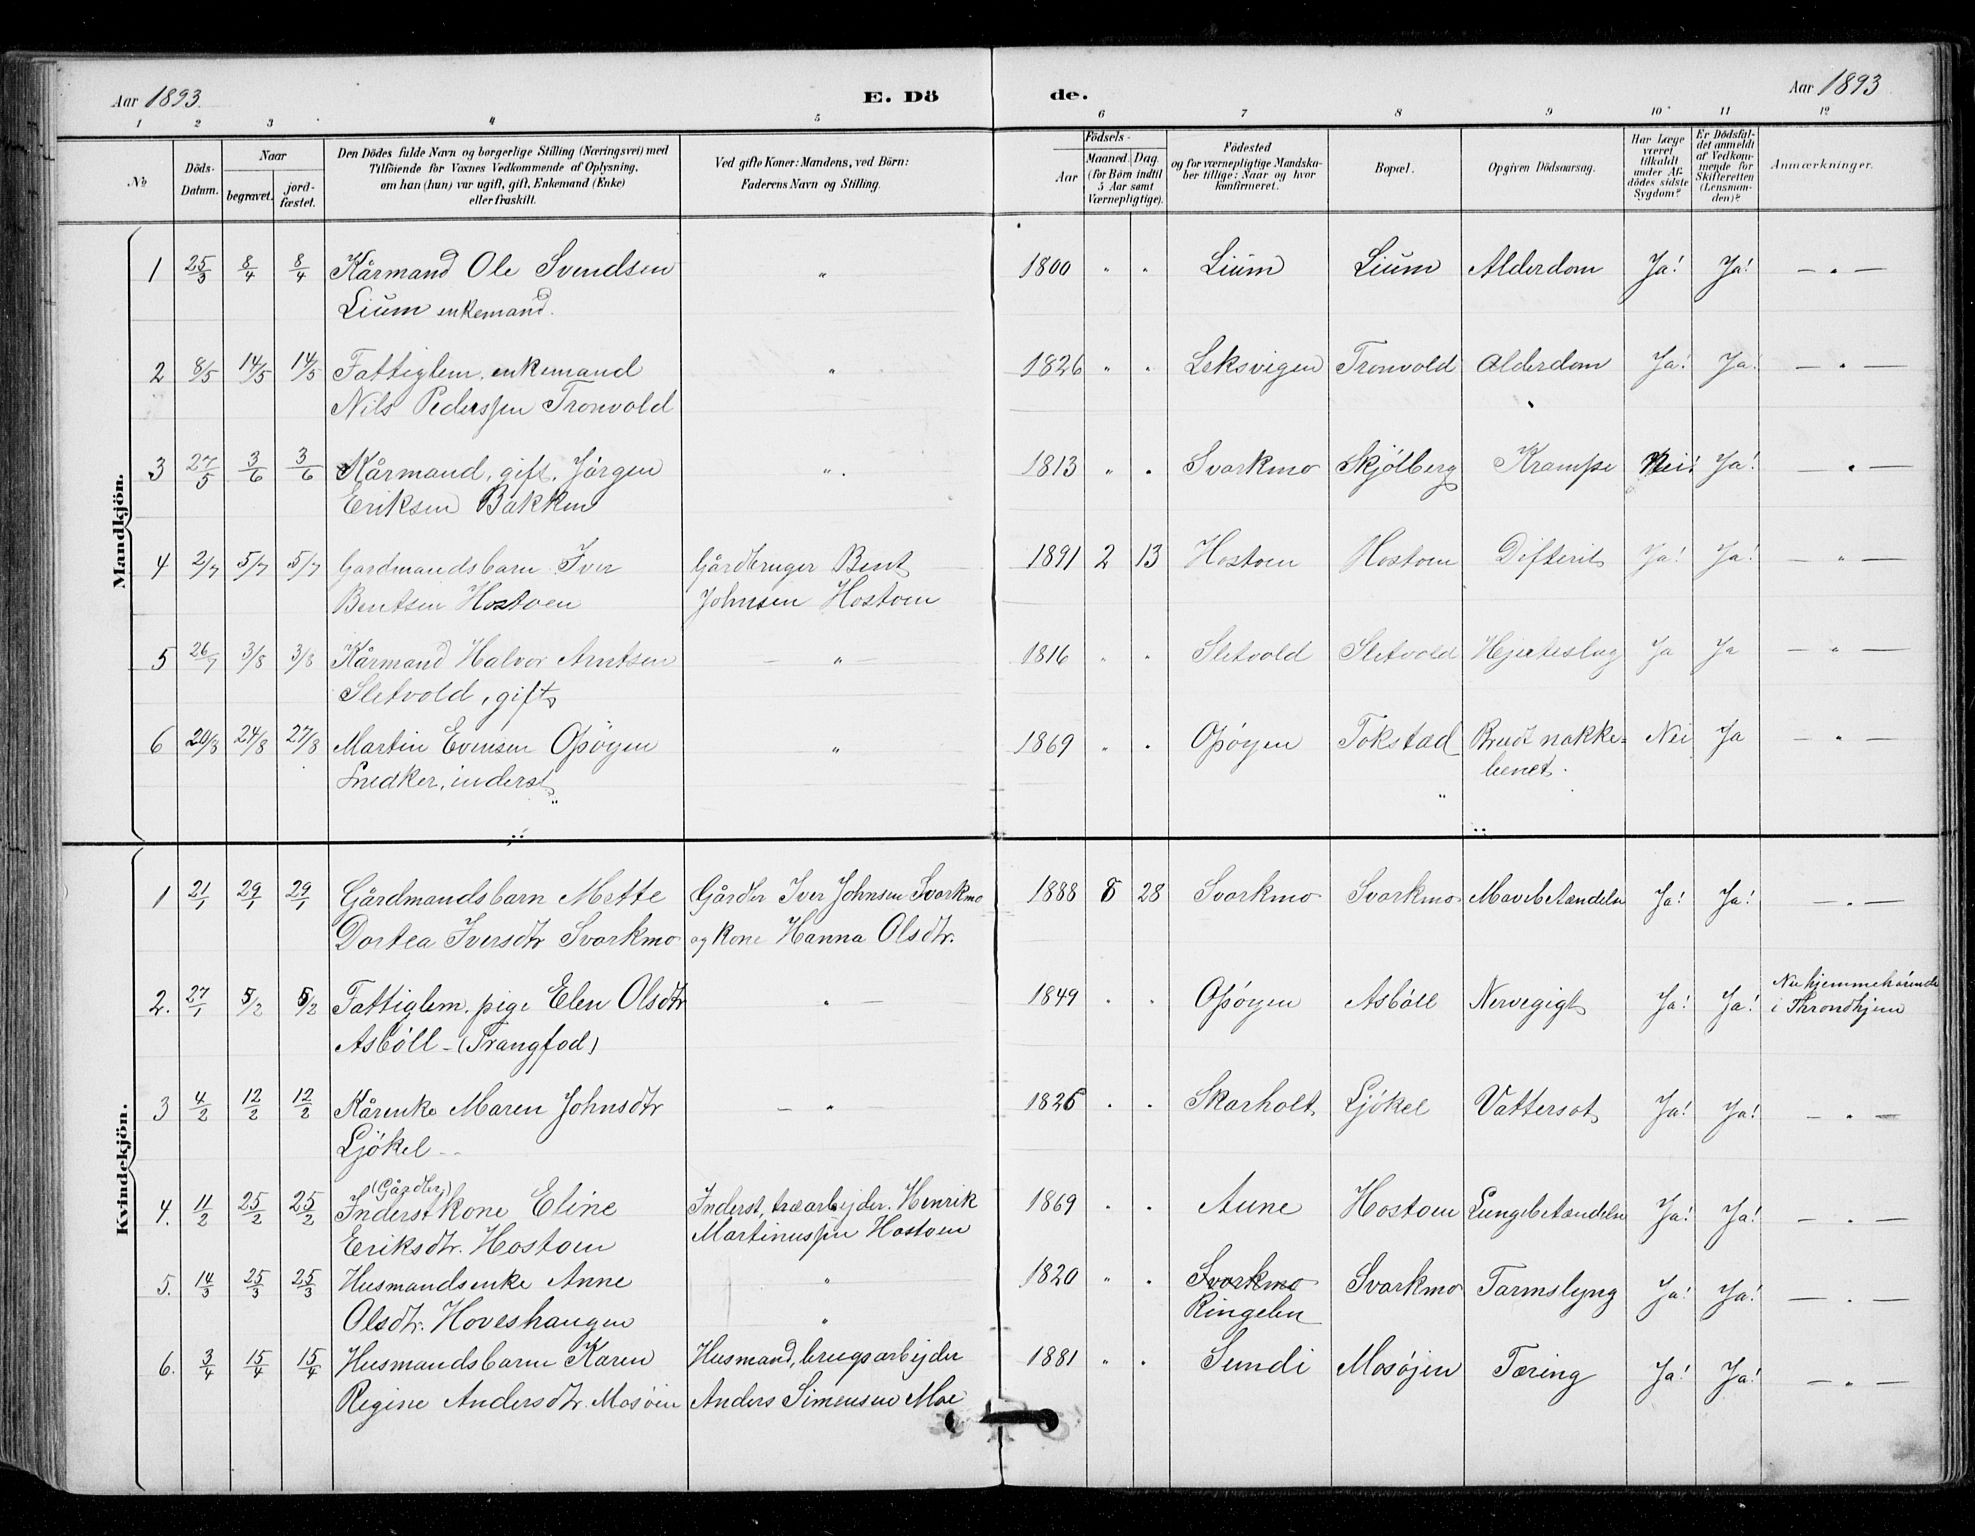 Aar 1893. E. Dö de. Aar 1893
1 2 3 4 5 6 7 8 9 10 11 12
No
Döds-
Datum.
Naar
begravet.
jord-
fæstet.
Den Dödes fulde Navn og borgerlige Stilling (Næringsvei) med
Tilföiende for Voxnes Vedkommende af Oplysning,
om han (hun) var ugift, gift, Enkemand (Enke)
eller fraskilt.
Ved gifte Koner: Mandens, ved Börn:
Faderens Navn og Stilling.
Födsels-
Aar
Maaned. Dag.
(for Börn indtil
5 Aar samt
Værnepligtige).
Födested
og for værnepligtige Mandska-
ber tillige: Naar og hvor
konfirmeret.
Bopæl.
Opgiven Dödsaarsag.
Har Læge
været
tilkaldt
under Af-
dödes sidste
Sygdom?
Er Dödsfal-
det anmeldt
af Vedkom-
mende for
Skifteretten
(Lensman-
den)?
Anmærkninger.
Mandkjön.
1 25/3 8/4 8/4 Kårmand Ole Svendsen " 1800 " " Lium Lium Alderdom Ja! Ja! — " —
Lium enkemand.
2 8/5 14/5 14/5 Fattiglem, enkemand " 1826 " " Leksvigen Tronvold Alderdom Ja! Ja! — " —
Nils Pederssen Tronvold
3 27/5 3/6 3/6 Kårmand, gift, Jörgen " 1813 " " Svorkmo Skjölberg Krampe Nei! Ja! — " —
Eriksen Bakken
4 2/7 5/7 5/7 Gardmandsbarn Iver Gårdbruger Bent 1891 2 13 Hostoen Hostoen Difterit Ja! Ja! — " —
Bentsen Hostoen Johnsen Hostoen
5 26/7 3/8 3/8 Kårmand Halvor Arntsen — " — 1816 " " Sletvold Sletvold Hjerteslag Ja Ja — " —
Sletvold, gift
6 20/8 24/8 27/8 Martin Evensen Opöyen " 1869 " " Opöyen Tokstad Brudt nakke- Nei Ja — " —
Snedker, inderst benet.
Kvindekjön.
1 21/1 29/1 29/1 Gårdmandsbarn Mette Gårdbr Iver Johnsen Svorkmo 1888 8 28 Svorkmo Svorkmo Mavebetændelse Ja! Ja! — " —
Dortea Iversdtr Svorkmo og kone Hanna Olsdtr.
2. 27/1 5/2 5/2 Fattiglem, pige Elen Olsdtr " — 1849 " " Opöyen Asböll Nervegigt Ja! Ja! Nu hjemmehörende
Asböll – (Trangfod) i Throndhjem
3 4/2 12/2 12/2 Kårenke Maren Johnsdtr — " — 1826 " " Skarholt Ljökel Vattersot Ja! Ja! — " —
Ljökel –
(Gårdbr)
4. 11/2 25/2 25/2 Inderstkone Eline Inderst, træarbejder. Henrik 1869 " " Aune Hostoen Lungebetændelse Ja! Ja! — " —
Eriksdtr. Hostoen Martinussen Hostoen
5. 14/3 25/3 25/3 Husmandsenke Anne " 1820 " " Svorkmo Svorkmo Tarmslyng Ja! Ja! — " —
Olsdtr. Hoveshaugen " Ringelen
6. 3/4 15/4 15/4 Husmandsbarn Karen Husmand, brugsarbejder 1881 " " Sundi Mosöjen Tæring Ja! Ja! — " —
Regine Andersdtr. Mosöien Anders Simensen Moe